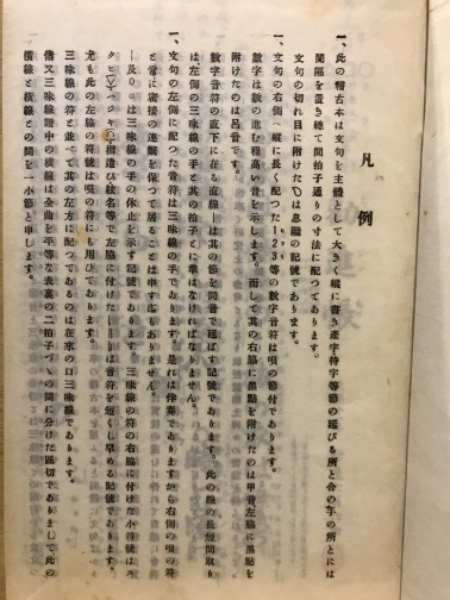 凡例
一、此の稽古本は文句を主體として大きく縱に書き産字持字等節の延びる所と合の手の所とには
間隔を置き總て間拍子通りの寸法に配つてあります。
文句の切れ目に附けたは息繼の記號であります。
一、文句の右側へ縱に長く配つた123等の數字音符は唄の節付であります。
數字は數の進む程高い音を示します。而して其の右脇に黑點を附けたのは甲音左脇に黑點を
附けたのは呂音です。
數字音符の直下に在る直線―は其の節を同音で延ばす記號であります。此の線の長短間取り
は、左側の三味線の手と其の拍子に準はなければなりません。
一、文句の左側に配つた音符は三味線の手であります。是れは伴奏でありますから右側の唄の符
と常に密接の連繫を保つて居ることは申す迄もありません。
―及0○は三味線の手の休止を示す記號であります。三味線の符の右脇に付けた小符號はス
等で左脇に付けた―は音符を短くし早める記號であります。
尤も此の左脇の符號は唄の符にも用ひてあります。
三味線の符と並べて其の左方に配つてあるのは在來の口三味線であります。
偖又三味線譜中の橫線は全曲を平等な表裏の二拍子づゝの間に分けた區切でありまして此の
橫線と橫線との間を一小節と申します。